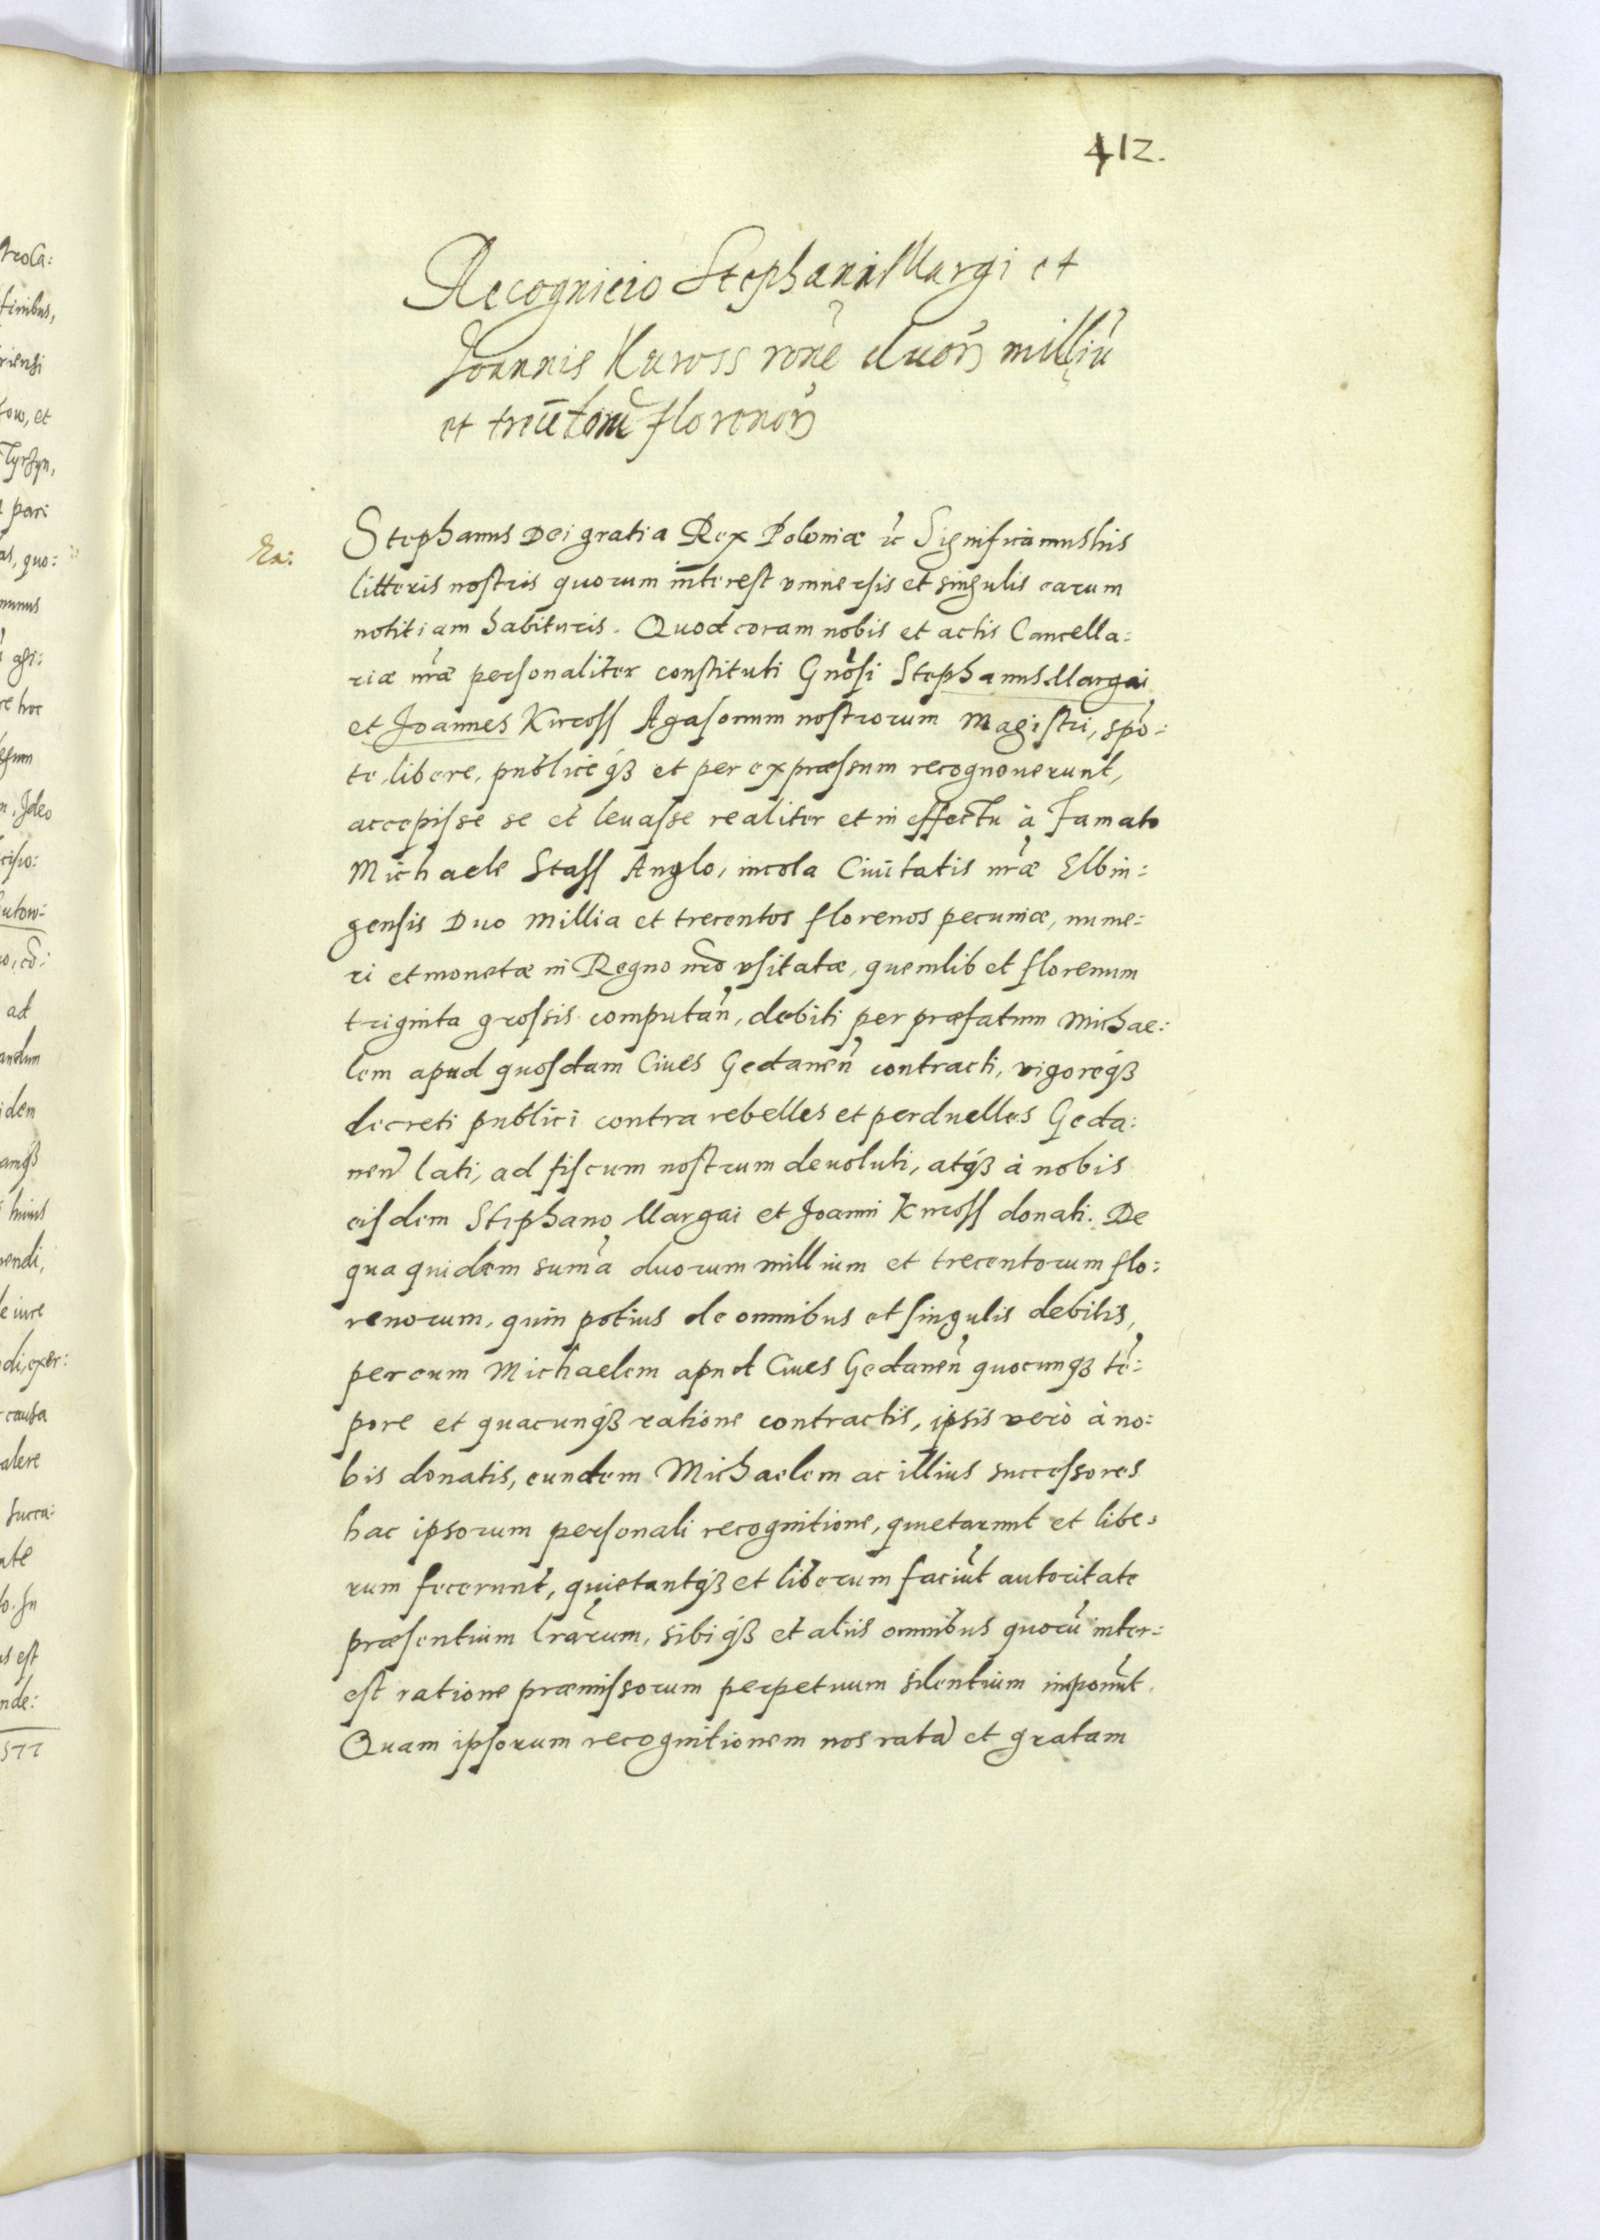 412.
Recognicio Stephani Margi et
Joannis Kuross rõne duoꝝ milliũ
et trecẽtorũ florenoꝝ
Ra:
Stephanus Dei gratia Rex Poloniæ ꝛc Significamus his
litteris nostris quorum interest vniuersis et singulis earum
notitiam habituris. Quod coram nobis et actis Cancella:
riæ nræ personaliter constituti Gnosi Stephanus Margai
et Joannes Kuross Agasonum nostrorum Magistri, spõ:
te, libere, publiceqꝫ et per expræssum recognouerunt,
accepisse se et leuasse realiter et in effectu à Famato
Michaele Stass Anglo, incola Ciuitatis nræ Elbin:
gensis Duo millia et trecentos florenos pecuniæ, nume:
ri et monetæ in Regno nrõ vsitatæ, quemlibet florenum
triginta grossis computañ, debiti per præfatum Michae:
lem apud quosdam Ciues Gedaneñ contracti, vigoreqꝫ
decreti publici contra rebelles et perduelles Geda:
neñ lati, ad fiscum nostrum deuoluti, atqꝫ à nobis
eisdem Stephano Margai et Joanni Kuross donati. De
qua quidem sum̃a duorum millium et trecentorum flo:
renorum, quin potius de omnibus et singulis debitis,
per eum Michaelem apud Ciues Gedaneñ quocunqꝫ tẽ:
pore et quacunqꝫ ratione contractis, ipsis verò à no:
bis donatis, eundem Michaelem ac illius successores
hac ipsorum personali recognitione, quietarunt et libe:
rum fecerunt, quietantqꝫ et liberum faciũt autoritate
præsentium lrãrum, sibiqꝫ et aliis omnibus quorũ inter:
est ratione præmissorum perpetuum silentium imponũt.
Quam ipsorum recognitionem nos ratã et gratam